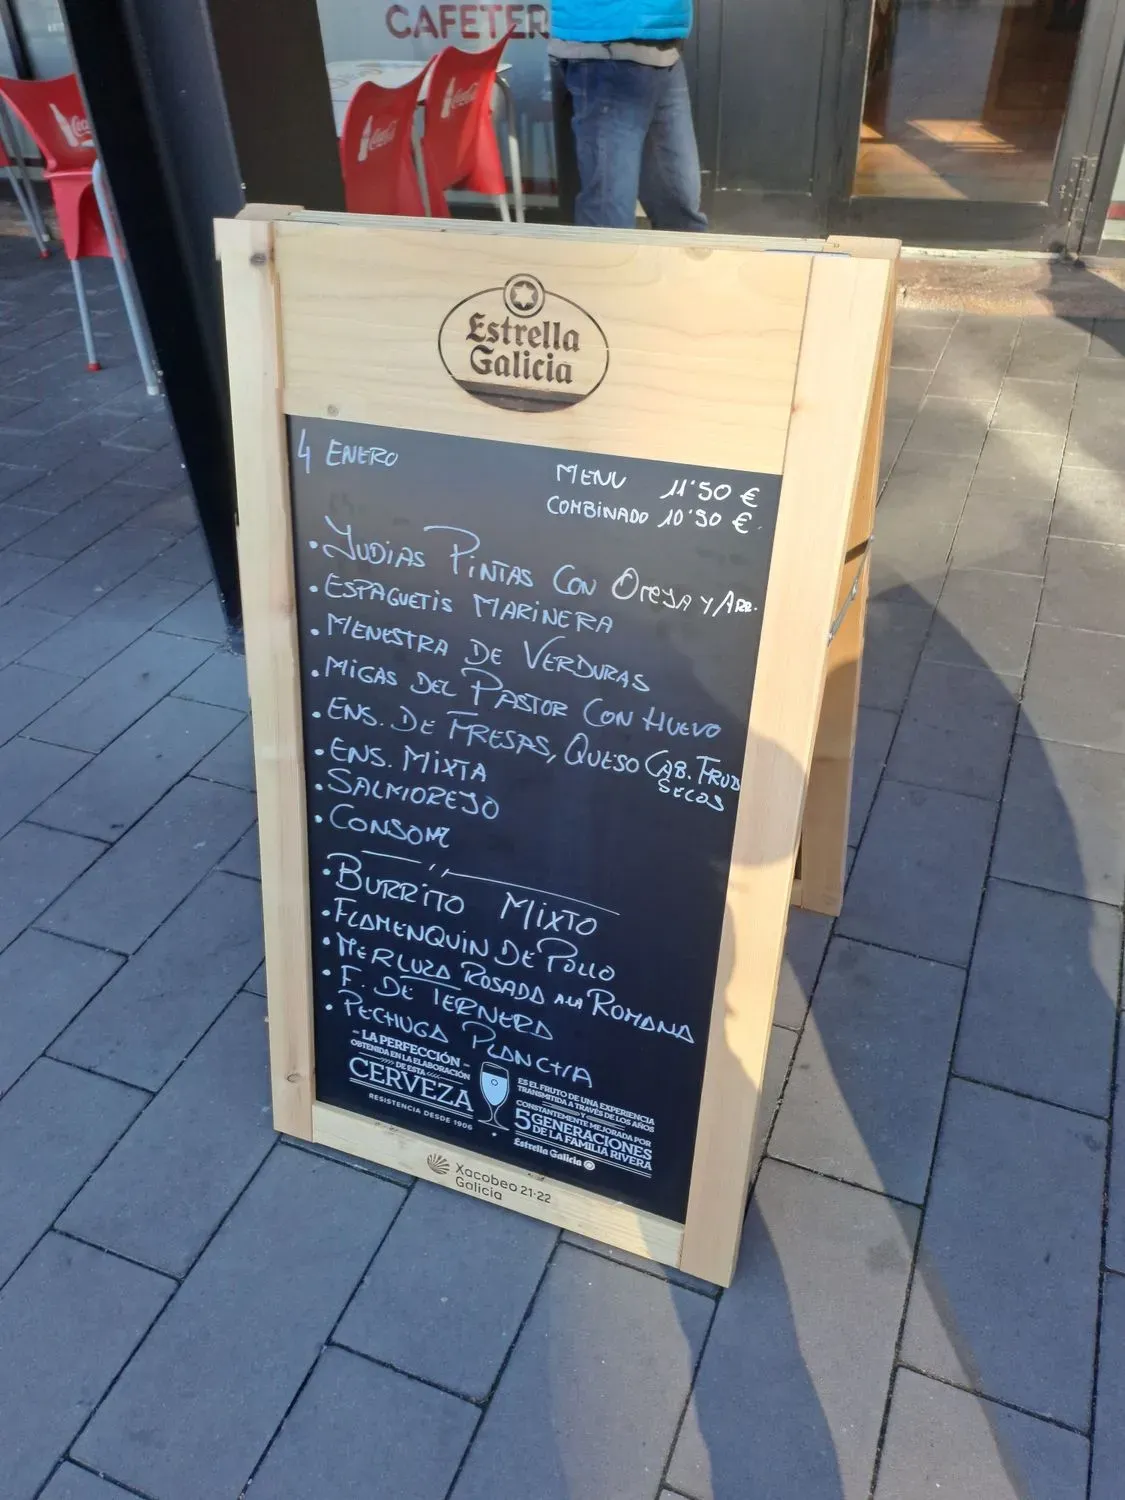 CAFETER
Coca-Cola
Coca-Cola
Coca
Estrella
Galicia
4 ENERO
MENU 11'50 €
COMBINADO 10'90 €.
• JUDIAS PINTAS CON OREJA Y ARR.
• ESPAGUETIS MARINERA
• MENESTRA DE VERDURAS
• MIGAS DEL PASTOR CON HUEVO
• ENS. DE FRESAS, QUESO CAB. FRUTOS
SECOS
• ENS. MIXTA
• SALMOREJO
• CONSOME
• BURRITO MIXTO
• FLAMENQUIN DE POLLO
• MERLUZA ROSADA A LA ROMANA
• F. DE TERNERA
• PECHUGA PLANCHA
- LA PERFECCIÓN -
OBTENIDA EN LA ELABORACIÓN
DE ESTA
CERVEZA
RESISTENCIA DESDE 1906
ES EL FRUTO DE UNA EXPERIENCIA
TRANSMITIDA A TRAVÉS DE LOS AÑOS
Y
CONSTANTEMENTE MEJORADA POR
5 GENERACIONES
DE LA FAMILIA RIVERA
Estrella Galicia
Xacobeo 21·22
Galicia